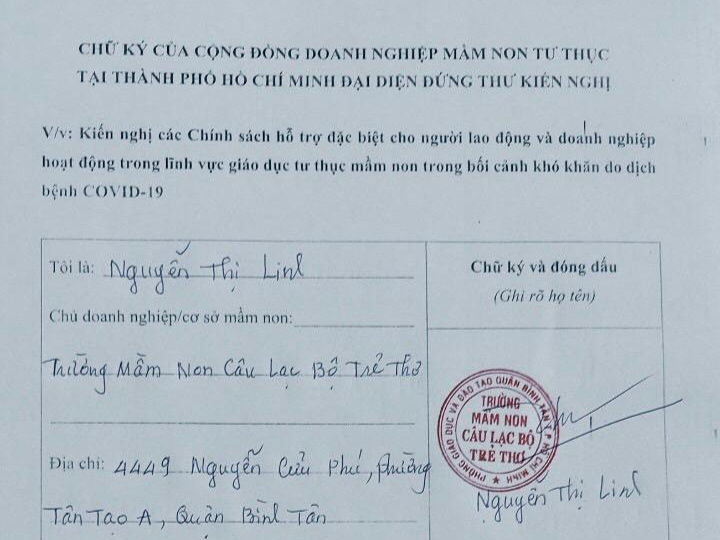 CHỮ KÝ CỦA CỘNG ĐỒNG DOANH NGHIỆP MẦM NON TƯ THỤC
TẠI THÀNH PHỐ HỒ CHÍ MINH ĐẠI DIỆN ĐỨNG THƯ KIẾN NGHỊ
V/v: Kiến nghị các Chính sách hỗ trợ đặc biệt cho người lao động và doanh nghiệp
hoạt động trong lĩnh vực giáo dục tư thục mầm non trong bối cảnh khó khăn do dịch
bệnh COVID-19
Tôi là: Nguyễn Thị Linh
Chủ doanh nghiệp/cơ sở mầm non:
Trường Mầm Non Câu Lạc Bộ Trẻ Thơ
Địa chỉ: 4449 Nguyễn Cửu Phú, Phường
Tân Tạo A, Quận Bình Tân
Chữ ký và đóng dấu
(Ghi rõ họ tên)
PHÒNG GIÁO DỤC VÀ ĐÀO TẠO QUẬN BÌNH TÂN T.P HỒ CHÍ MINH
TRƯỜNG
MẦM NON
CÂU LẠC BỘ
TRẺ THƠ
Nguyễn Thị Linh